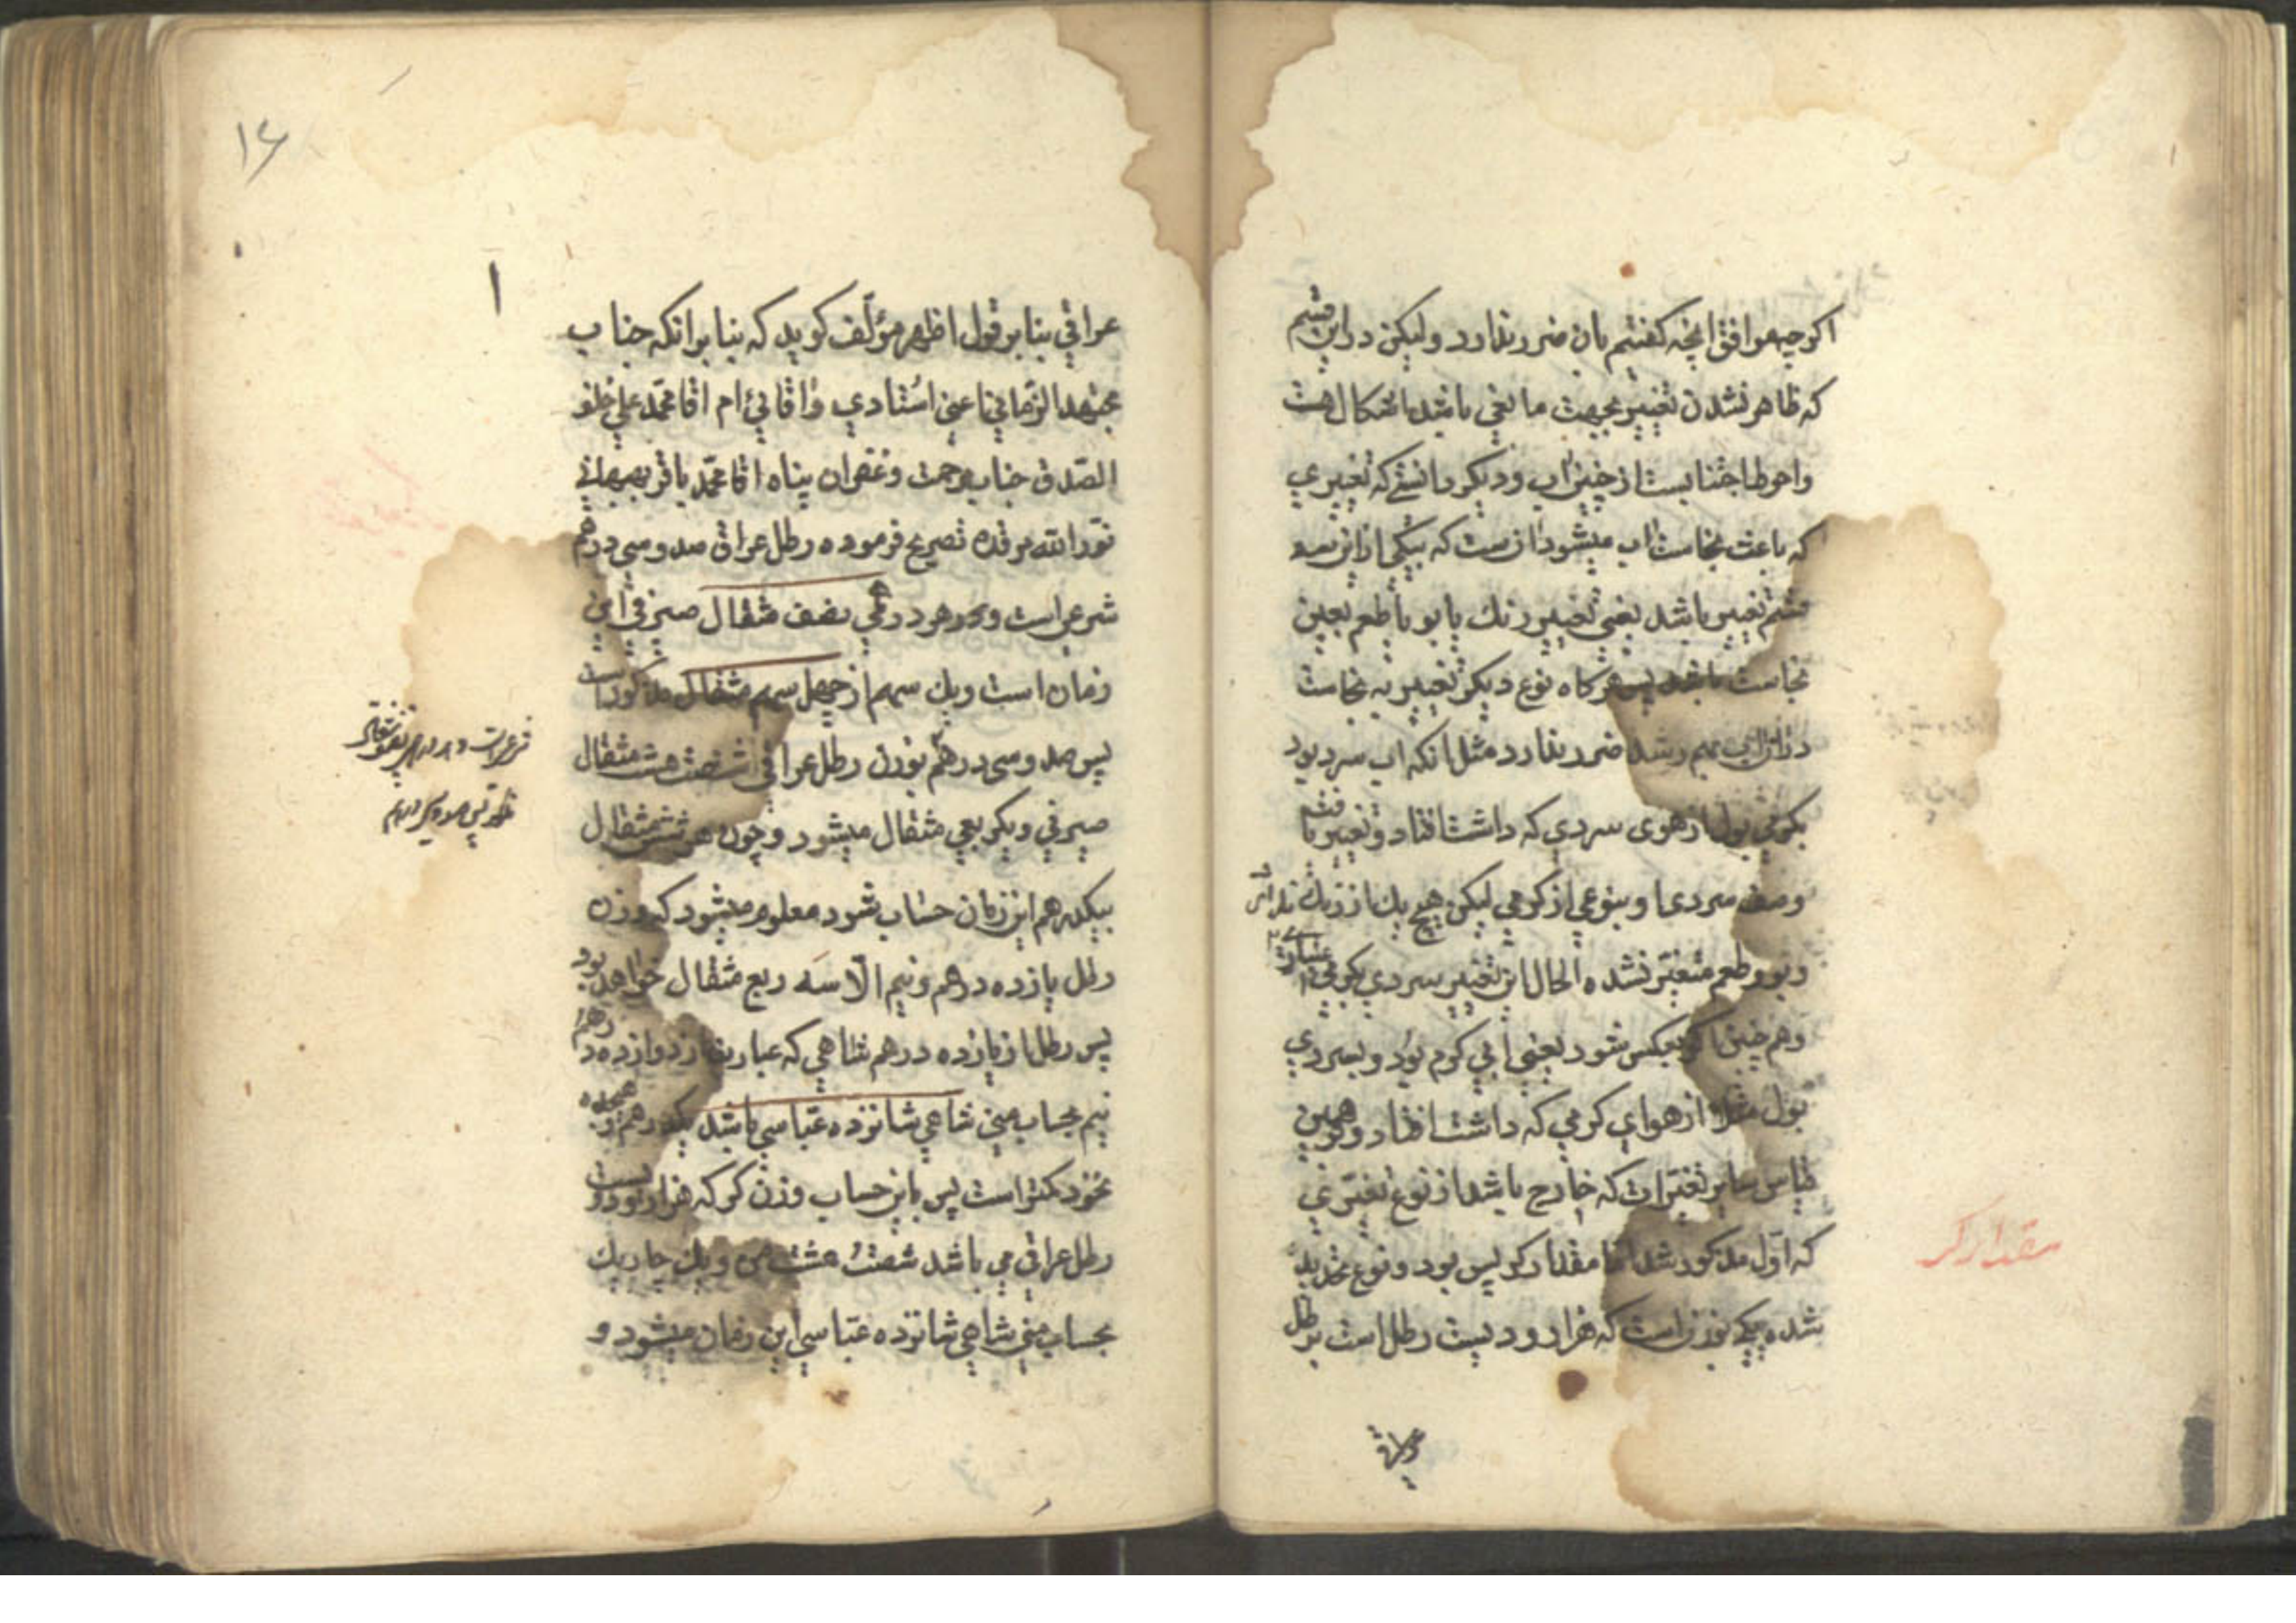 اکرچه موافق انچه کفتیم بان ضرر ندارد ولیکن در این قسم
که ظاهر نشدن تغییر بجهت مانعی باشد اشکال هست
واحوط اجتنابست از چنین اب ودیکر دانستی که تغییری
که باعث نجاست اب میشود انست که بیکی از این سه
قسم تغییر باشد یعنی تغییر رنك یا بو یا طعم بعین
نجاست باشد پس هرکاه نوع دیکر تغییر به نجاست
در ان اب بهم رسد ضرر ندارد مثل انکه اب سرد بود
بکرمی بول از هوی سردی که داشت افتاد وتغییر یافت
وصف سردی او بنوعی از کرمی لیکن هیچ یك از رنك
وبو وطعم متغیر نشده الحال این تغییر سردی بکرمی
وهم چنین اکر بعکس شود یعنی ابی کرم بود وبسردی
بول مثلا از هوای کرمی که داشت افتاد وبر همین
قیاس سایر تغیرات که خارج باشد از نوع تغیری
که اول مذکور شد اما مقدار کر پس بود ونوع تحدید
شده یکی بوزن است که هزار ودویست رطل است برطل
عراقی
مقدار کر
۱۶
۱
عراقی بنا بر قول اظهر مؤلف کوید که بنا بر انکه جناب
مجتهد الزمانی اعنی استادی واقائی ام اقا محمد علی خلف
الصدق جناب مرحمت وغفران پناه اقا محمد باقر بهبهانی
نور الله مرقده تصریح فرموده رطل عراقی صد وسی درهم
شرعی است وهر درهمی نصف مثقال صیرفی این
زمان است ویك سهم از چهل سهم مثقال مذکور است
پس صد وسی درهم بوزن رطل عراقی شصت هشت مثقال
صیرفی ویکربعی مثقال میشود وچون هر شش مثقال
بیکدرهم این زمان حساب شود معلوم میشود که وزن
رطل یازده درهم ونیم الا سه ربع مثقال خواهد بود
پس رطل از یازده درهم شاهی که عبارت از دوازده درهم
نیم بحساب منی شاهی شانزده عباسی باشد یکدرهم وهیجده
نخود کمتر است پس باین حساب وزن کر که هزار ودویست
رطل عراقی می باشد شصت هشت من ویك چاریك
بحساب منی شاهی شانزده عباسی این زمان میشود و